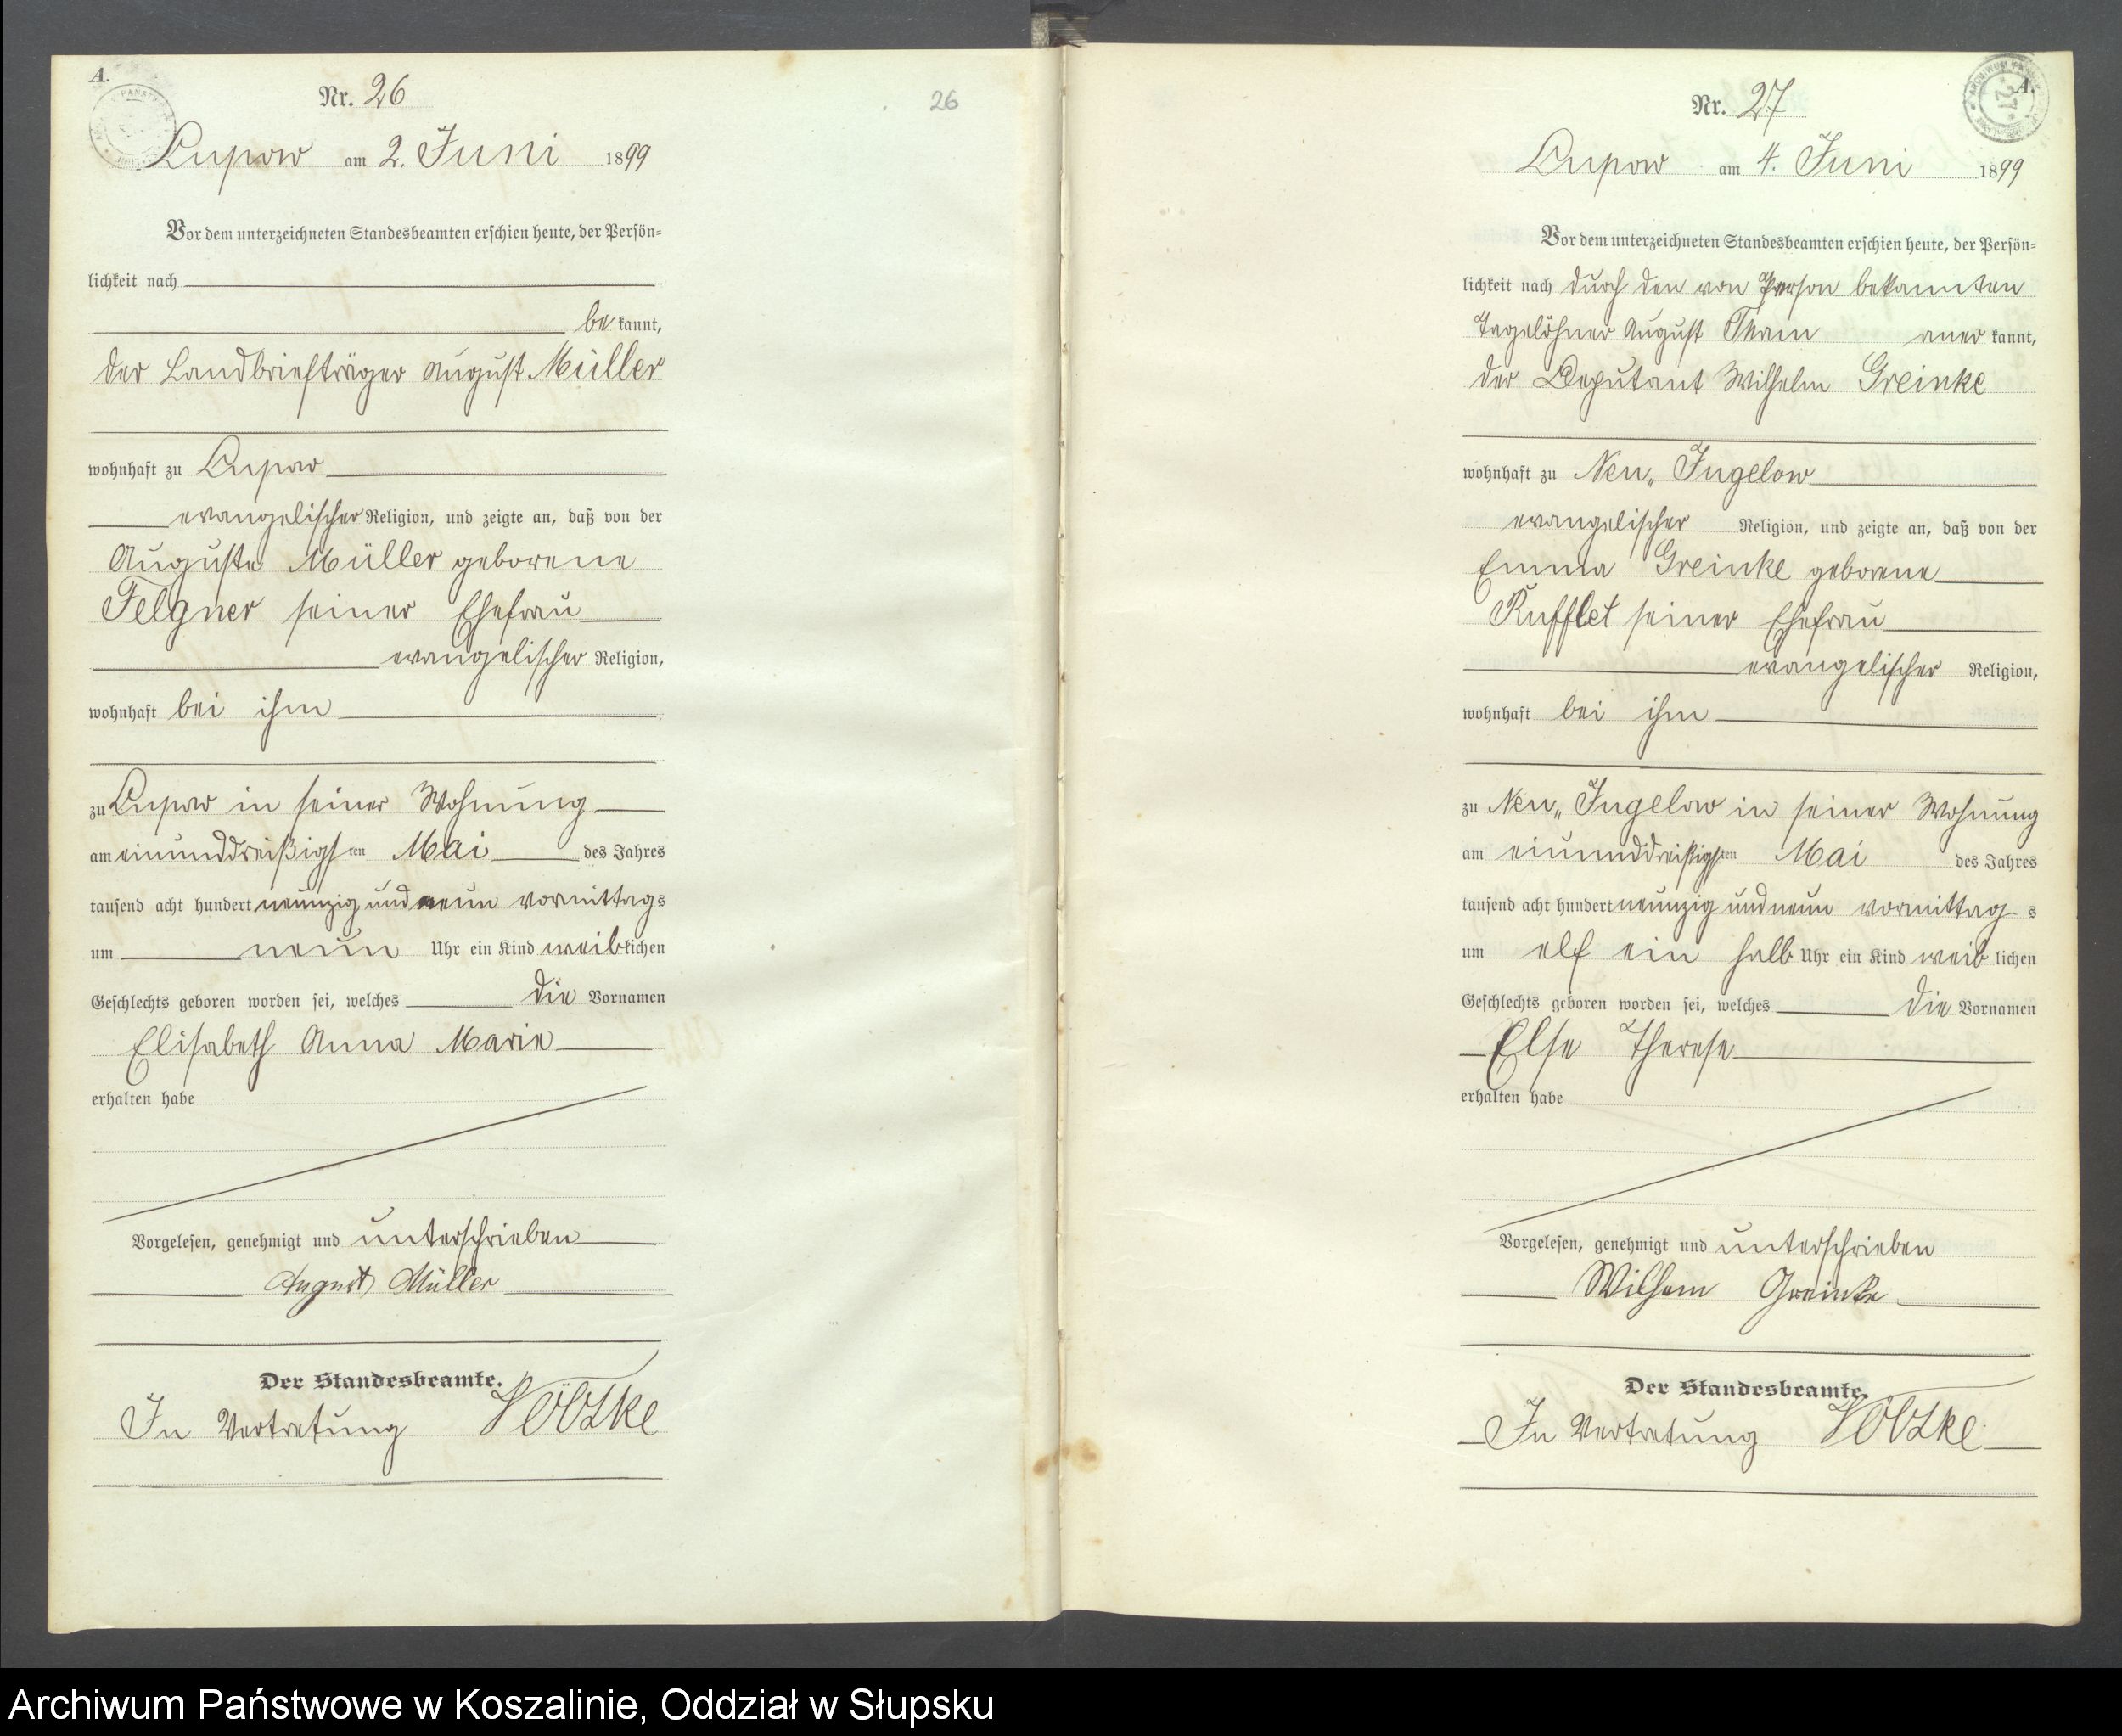 A.
Nr. 26
26
Lupow am 2. Juni 1899
Vor dem unterzeichneten Standesbeamten erschien heute, der Persön-
lichkeit nach
be kannt,
der Landbriefträger August Müller
wohnhaft zu Lupow
evangelischer Religion, und zeigte an, daß von der
Auguste Müller geborene
Felgner seiner Ehefrau
evangelischer Religion,
wohnhaft bei ihm
zu Lupow in seiner Wohnung
am einunddreißigsten Mai des Jahres
tausend acht hundert neunzig und neun vormittags
um neun Uhr ein Kind weiblichen
Geschlechts geboren worden sei, welches die Vornamen
Elisabeth Anna Marie
erhalten habe
Vorgelesen, genehmigt und unterschrieben
August Müller
Der Standesbeamte.
In Vertretung Völzke
A.
Nr. 27
Lupow am 4. Juni 1899
Vor dem unterzeichneten Standesbeamten erschien heute, der Persön-
lichkeit nach durch den von Person bekannten
Tagelöhner August Tham aner kannt,
der Deputant Wilhelm Greinke
wohnhaft zu Neu„ Jugelow
evangelischer Religion, und zeigte an, daß von der
Emma Greinke geborene
Rufflet seiner Ehefrau
evangelischer Religion,
wohnhaft bei ihm
zu Neu„ Jugelow in seiner Wohnung
am einunddreißigsten Mai des Jahres
tausend acht hundert neunzig und neun vormittag s
um elf ein halb Uhr ein Kind weib lichen
Geschlechts geboren worden sei, welches die Vornamen
Else Therese
erhalten habe
Vorgelesen, genehmigt und unterschrieben
Wilhem Greinke
Der Standesbeamte.
In Vertretung Völzke
Archiwum Państwowe w Koszalinie, Oddział w Słupsku